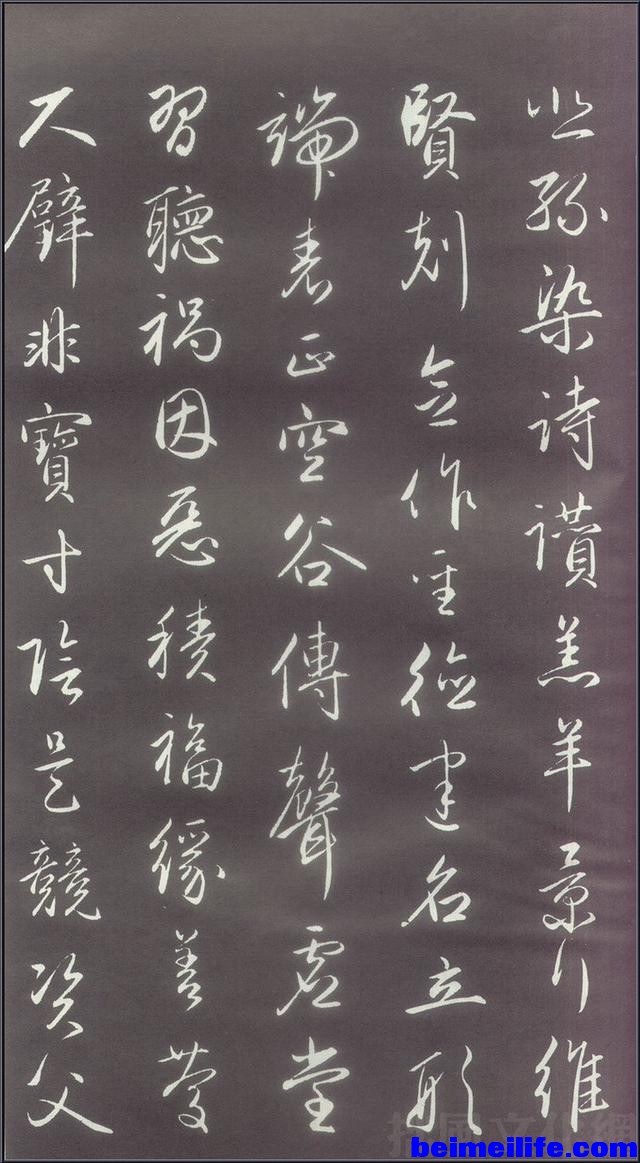 悲絲染詩讚羔羊景行維
賢剋念作聖德建名立形
端表正空谷傳聲虛堂
習聽禍因惡積福緣善慶
尺璧非寶寸陰是競資父
beimeilife.com